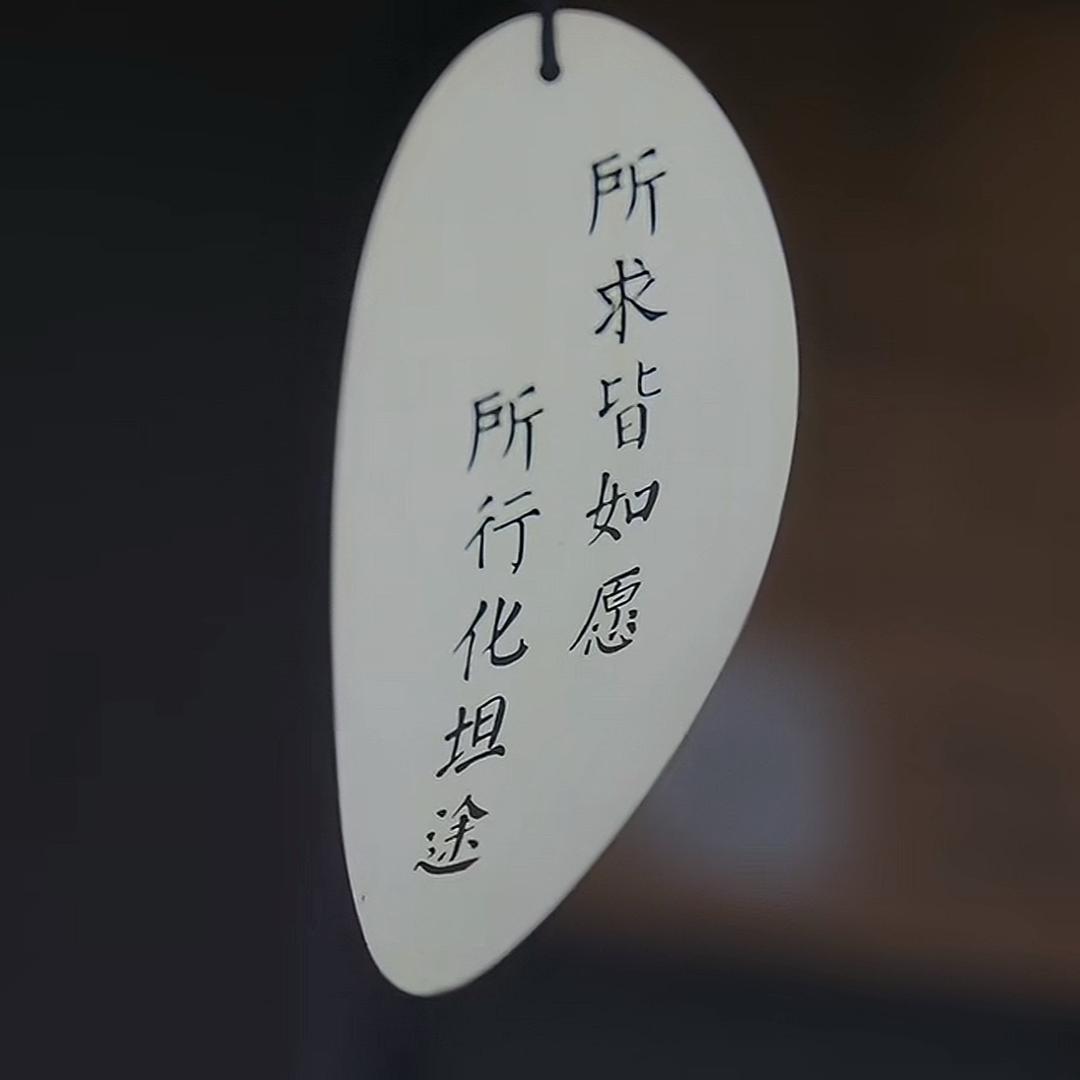 所求皆如愿
所行化坦途